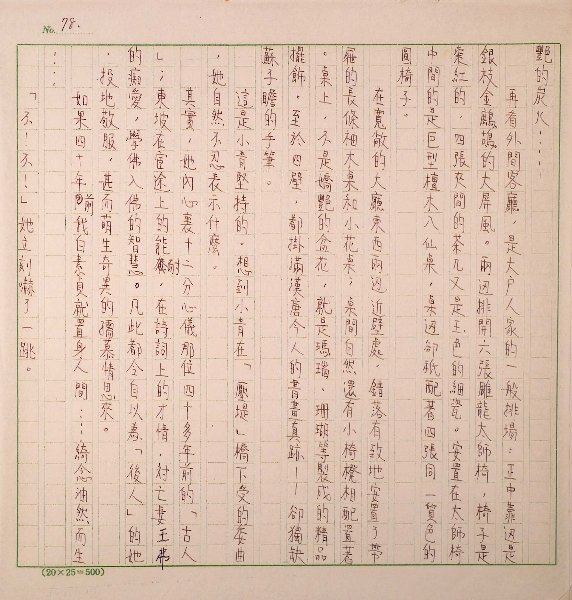 No. 78.
艷的炭火……
再看外間客廳，是大戶人家的一般排場：正中靠边是
銀枝金鷓鴣的大屏風。兩边排開六張雕龍太師椅，椅子是
棗紅的，四張夾間的茶几又是玉色的細瓷。安置在太師椅
中間的是巨型檀木八仙桌，桌边卻祇配著四張同一質色的
圓椅子。
在寬敞的大廳東西兩边近壁處，錯落有致地安置了帶
屜的長條柚木桌和小花桌；桌間自然還有小椅櫈相配置著
。桌上，不是嬌艷的盆花，就是瑪瑙、珊瑚等製成的精品
擺飾。至於四壁，都掛滿漢唐今人的書畫真跡——卻獨缺
蘇子瞻的手筆。
這是小青堅持的。想到小青在「壓堤」橋下受的委曲
，她自然不忍表示什麼。
其實，她內心裏十二分心儀那位四十多年前的「古人
」；東坡在宦途上的能耐，在詩詞上的才情，對亡妻王弗
的痴愛，學佛入佛的智慧。凡此都令自以為「後人」的她
，投地敬服，甚而萌生奇異的孺慕情思來。
如果四十年前我白素貞就置身人間……綺念油然而生
……
「不！不！」她立刻嚇了一跳。
(20×25=500)